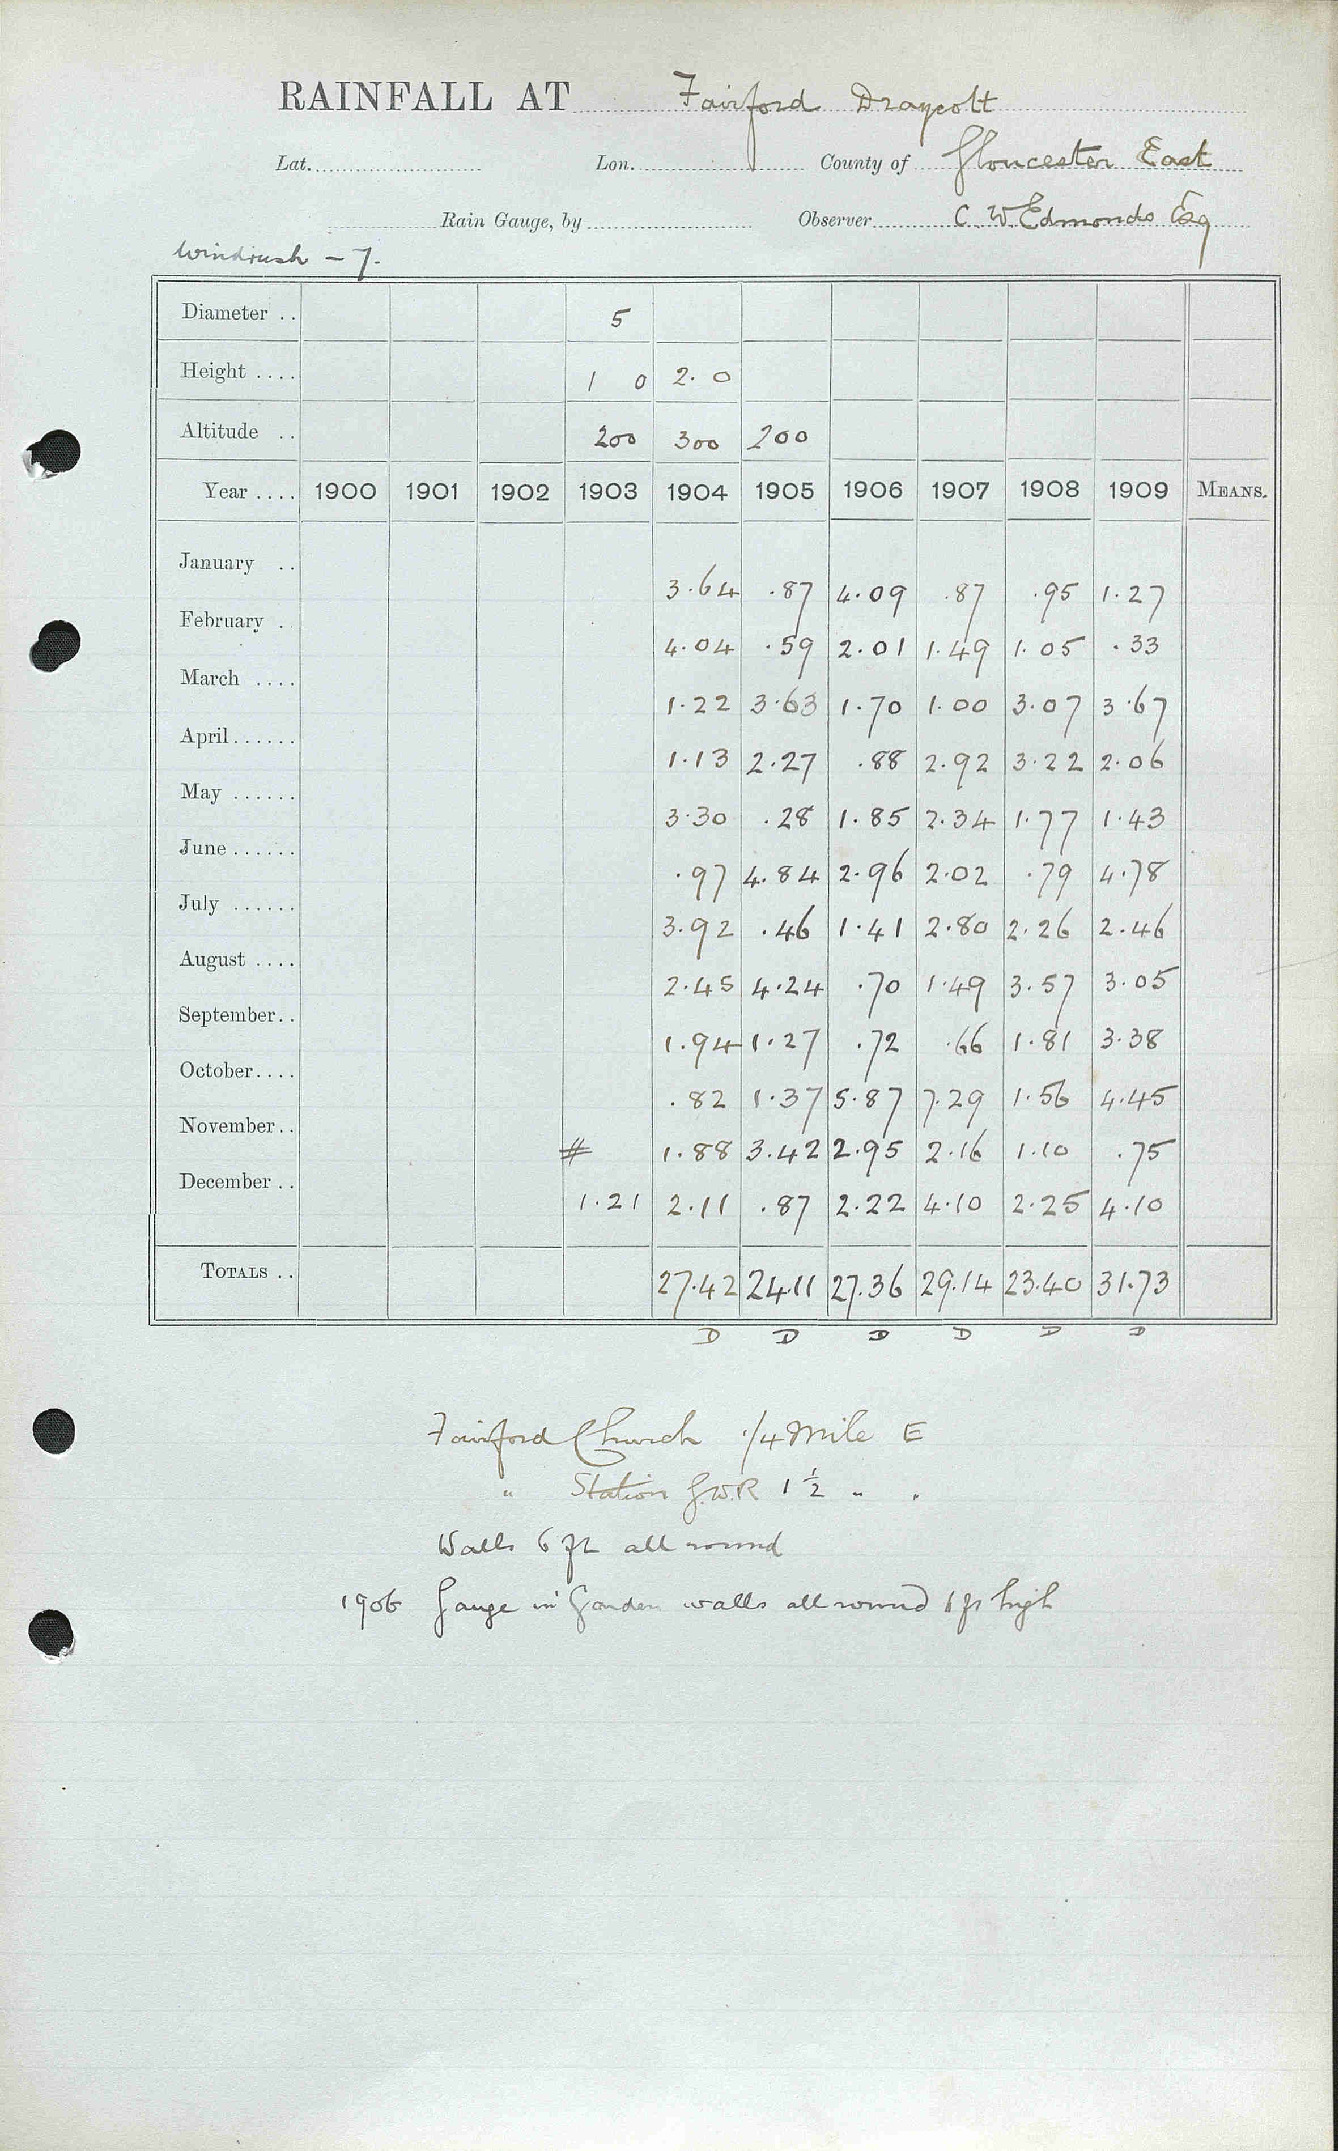 RAINFALL AT Fairford Draycott
Lat. Lon. County of Gloucester East
Rain Gauge, by Observer C. W. Edmonds Esq
Windrush - 7.
Diameter .. 5
Height .... 1 0 2. 0
Altitude .. 200 300 200
Year .... 1900 1901 1902 1903 1904 1905 1906 1907 1908 1909 MEANS.
January .. 3.64 .87 4.09 .87 .95 1.27
February . 4.04 .59 2.01 1.49 1.05 .33
March .... 1.22 3.63 1.70 1.00 3.07 3.67
April...... 1.13 2.27 .88 2.92 3.22 2.06
May ...... 3.30 .28 1.85 2.34 1.77 1.43
June...... .97 4.84 2.96 2.02 .79 4.78
July ...... 3.92 .46 1.41 2.80 2.26 2.46
August .... 2.45 4.24 .70 1.49 3.57 3.05
September.. 1.94 1.27 .72 .66 1.81 3.38
October.... .82 1.37 5.87 7.29 1.56 4.45
November.. # 1.88 3.42 2.95 2.16 1.10 .75
December .. 1.21 2.11 .87 2.22 4.10 2.25 4.10
TOTALS .. 27.42 24.11 27.36 29.14 23.40 31.73
D D D D D D
Fairford Church 1/4 Mile E
" Station G.W.R 1 1/2 " .
Walls 6 ft all round
1906 Gauge in Garden walls all round 6 ft high